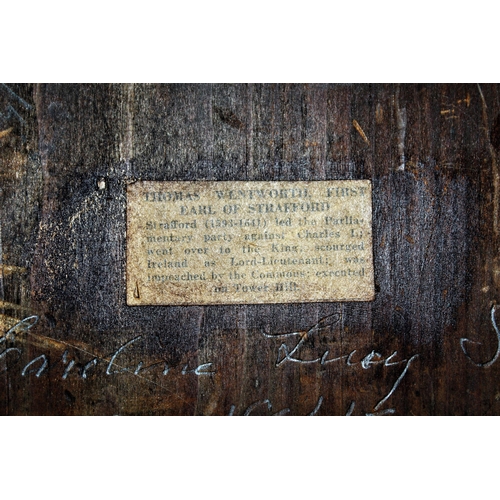 THOMAS WENTWORTH, FIRST
EARL OF STRAFFORD
Strafford (1593-1641) led the Parlia-
mentary party against Charles I.;
went over to the King, scourged
Ireland as Lord-Lieutenant; was
impeached by the Commons; executed
on Tower Hill.
Caroline Lucy S